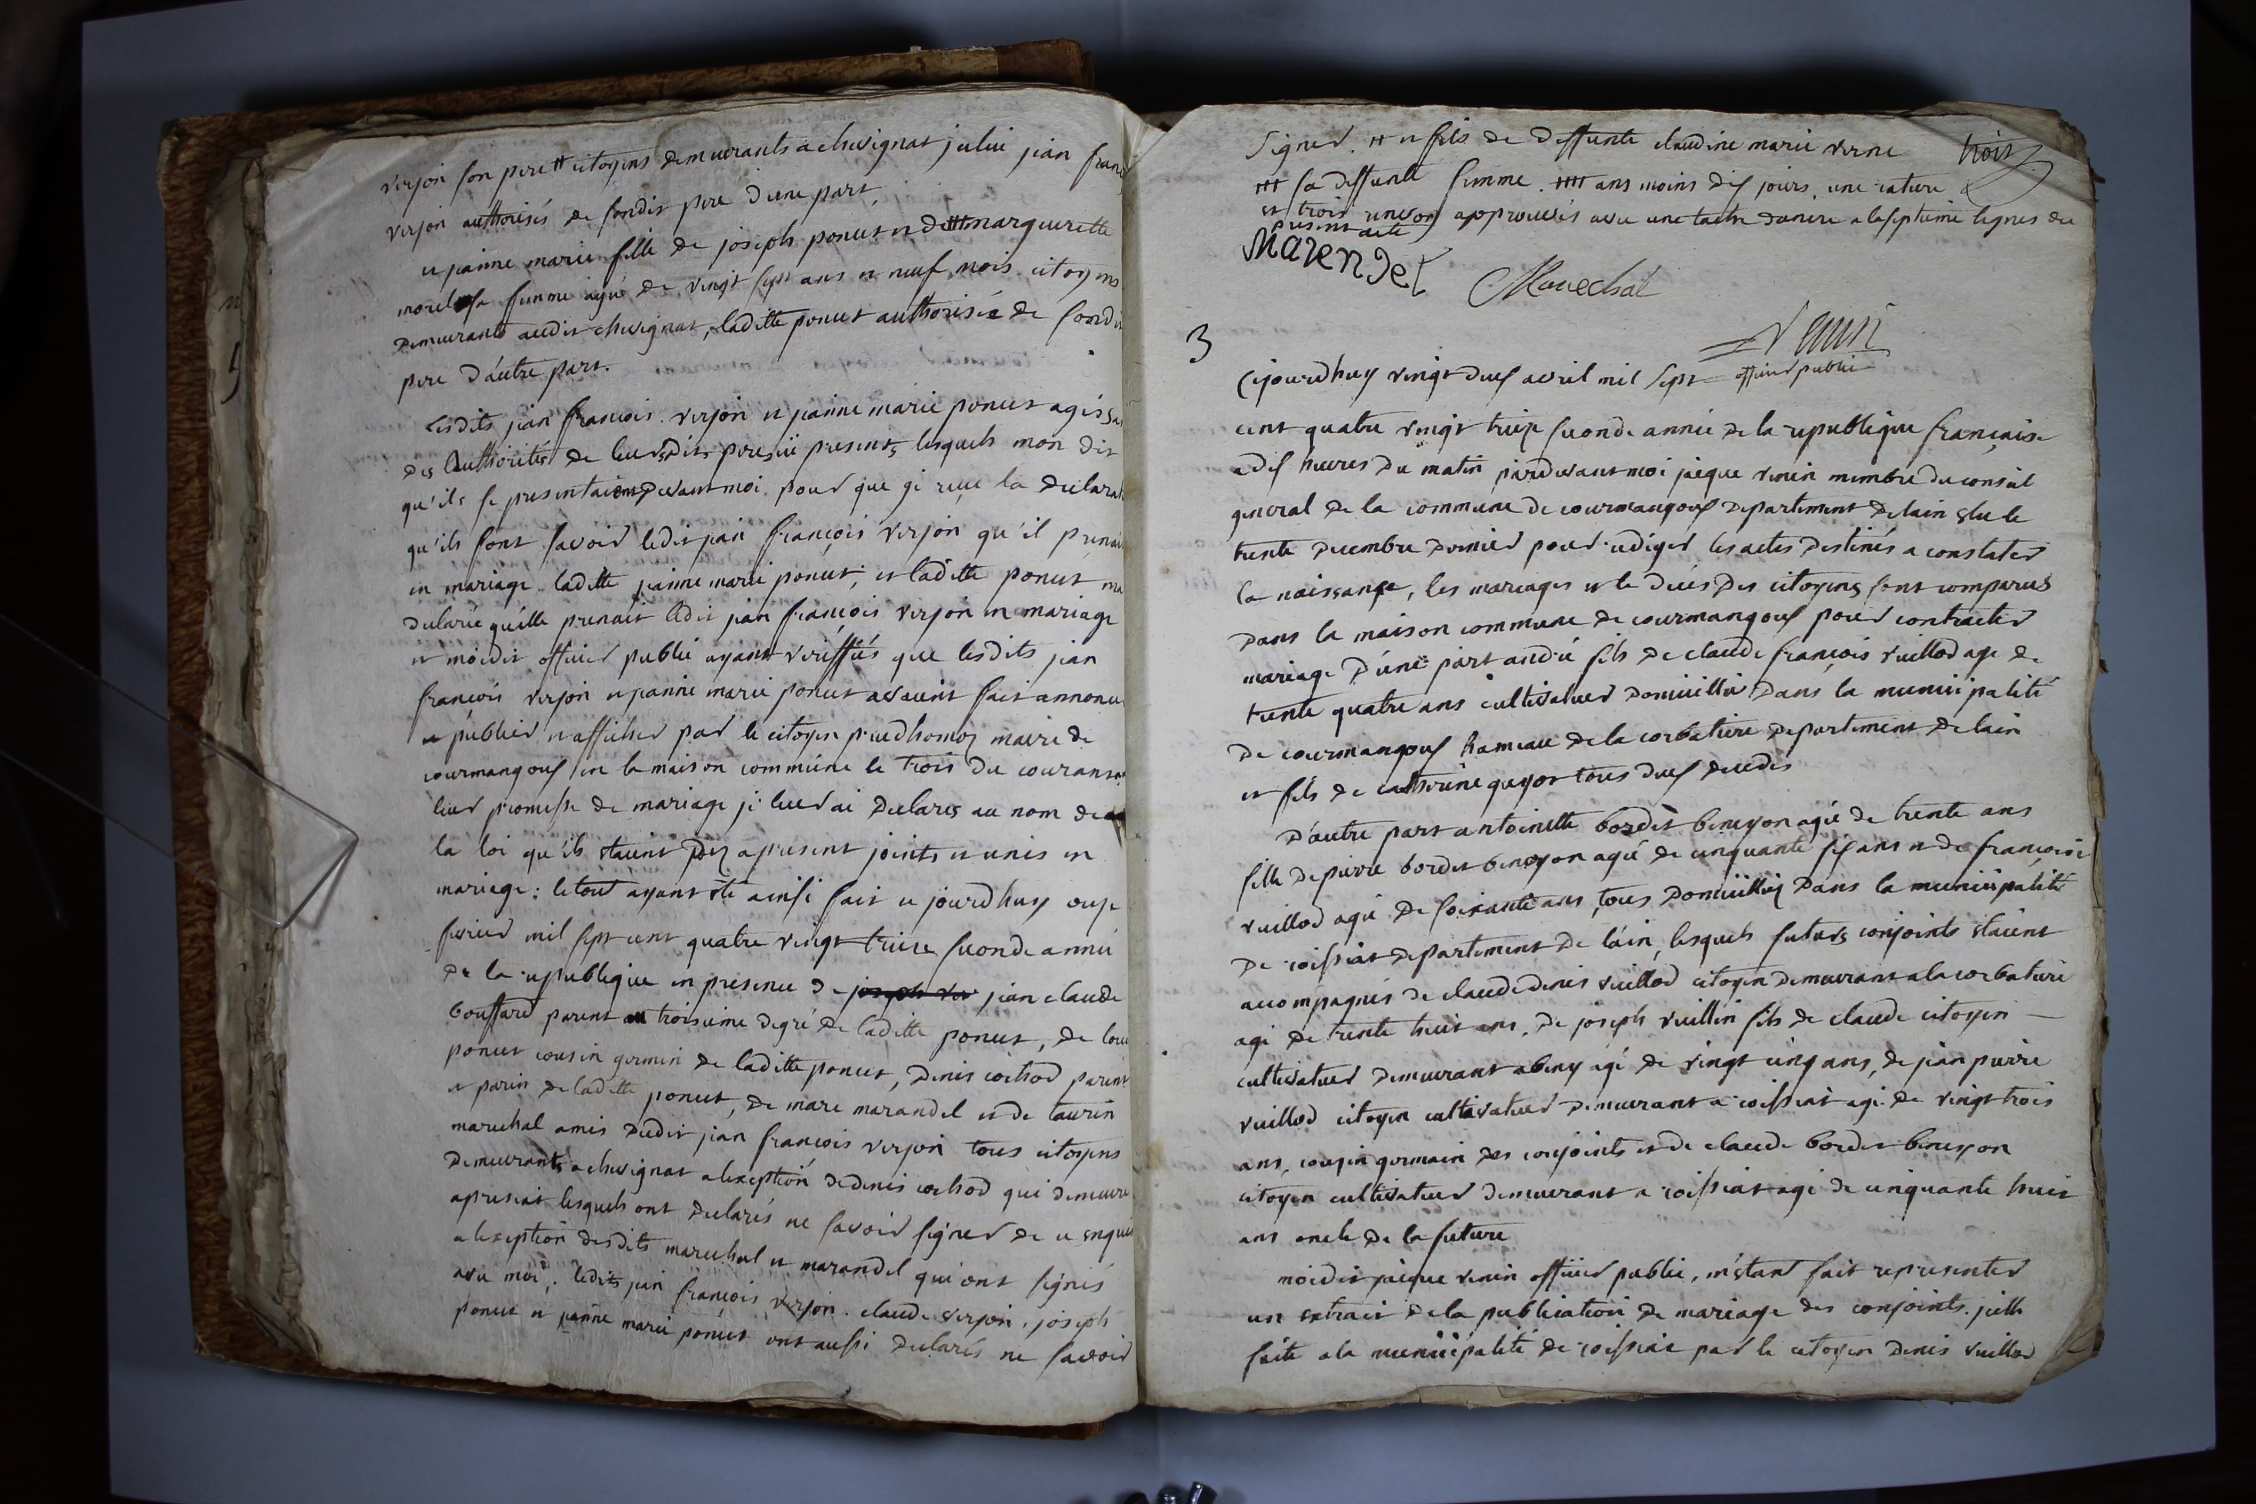 verjon son pere ++ citoyens demeurants a chevignat jului jean fran
verjon authorisés de sondit pere d'une part
et jeanne marie fille de joseph poncet et de ++++ marguerette
morel sa femme agée de vingt sept ans et neuf mois citoyens
demeurants audit chevignat, laditte poncet authorisée de sondi
pere d'autre part.
Lesdits jean françois verjon et jeanne marie poncet agissa
des authorités de leursdits peres ici presents lesquels mon dit
qu'ils se presentaient devant moi pour que je reçu la declarat
qu'ils font savoir ledit jean françois verjon qu'il prenai
en mariage laditte jeanne marie poncet; et laditte poncet ma
declarée qu'elle prenait ledit jean françois verjon en mariage
et moidit officier public ayant veriffiés que lesdits jean
françois verjon et jeanne marie poncet avaient fait annonce
et publier et afficher par le citoyen prudhomoz maire de
courmangoux en la maison commune le trois du courant
leur promesse de mariage je leur ai declarés au nom de
la loi qu'ils etaient dez apresent joints et unis en
mariage: le tout ayant été ainsi fait ce jourdhuy onze
fevrier mil sept cent quatre vingt treize seconde année
de la republique en presence de joseph ver jean claude
bouffard parent au troisieme degré de laditte poncet, de lou
poncet cousin germein de laditte poncet, denis cochod parent
et parin de laditte poncet, de marc marandel et de taurin
marechal amis dudit jean françois verjon tous citoyens
demeurants a chevignat a lexeption de denis cochod qui demeure
apressiat lesquels ont declarés ne savoir signer de ce enquis
a lexeption desdits marechal et marandel qui ont signés
avec moi; ledits jean françois verjon. claude verjon. joseph
poncet et jeanne marie poncet ont aussi declarés ne savoir
signer. ++ et fils de deffunte claudine marie verne
trois
+++ sa deffunte femme. ++++ ans moins dix jours, une rature
et trois renvois approuvés avec une tache danire a laseptieme lignes du
present acte
Marendel
Marechal
Venin
officier public
3
Cejourdhuy vingt deux avril mil sept
cent quatre vingt treize seconde année de la republique française
a dix heures du matin pardevant moi jacque venin membre du conseil
general de la commune de courmangoux departement de lain elu le
trente decembre dernier pour rediger les actes destinés a constater
la naissance, les mariages et le décés des citoyens sont comparus
dans la maison commune de courmangoux pour contracter
mariage d'une part andré fils de claude françois vuillod age de
trente quatre ans cultivateur domicillié dans la municipalité
de courmangoux hameau de la corbatiere departement de lain
et fils de catherine guyot tous deux decedés
D'autre part antoinette bordet beneyon agée de trente ans
fille de pierre bordet beneyon agé de cinquante six ans et de françoise
vuillod agée de soixante ans tous domicilliés dans la municipalité
de roissiat departement de l'ain, lesquels futurs conjoints etaient
accompagnés de claude denis vuillod citoyen demeurant a la corbatiere
agé de trente huit ans, de joseph vuillin fils de claude citoyen
cultivateur demeurant abeny agé de vingt cinq ans, de jean pierre
vuillod citoyen cultivateur demeurant a roissiat agé de vingt trois
ans, cousin germain des conjoints et de claude bordet beneyon
citoyen cultivateur demeurant a roissiat agé de cinquante huit
ans oncle de la future
moidit jacque venin officier public, m'etant fait representer
un extrait de la publication de mariage des conjoints. icelle
faite a la municipalité de roissiat par le citoyen denis vuillod